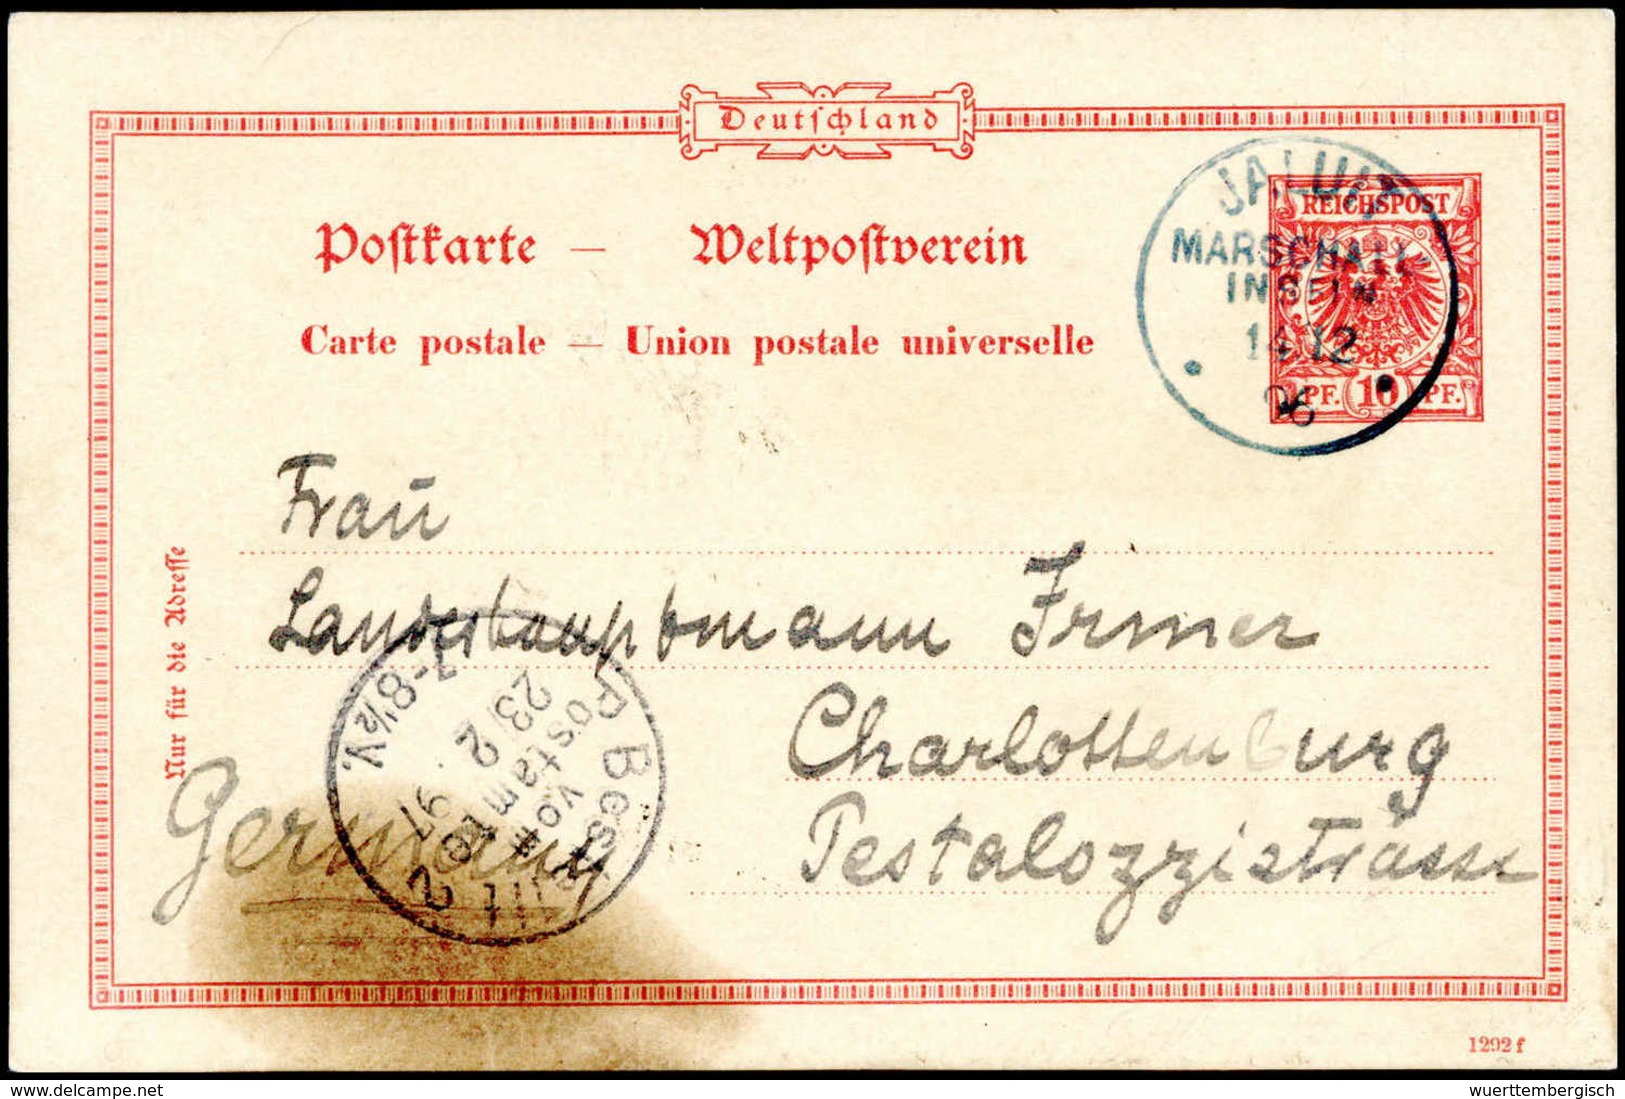 Deutschland
Postkarte — Weltpostverein
Carte postale — Union postale universelle
REICHSPOST
PF. 10 PF.
JALUIT
MARSCHALL-
INSELN
14 12
96
Frau
Landeshauptmann Irmer
Charlottenburg
Pestalozzistrasse
Germany
Nur für die Adresse
Bestellt
vom
Postamte 2
23/2
97
7-8½V.
1292 f
delcampe.net
wuerttembergisch